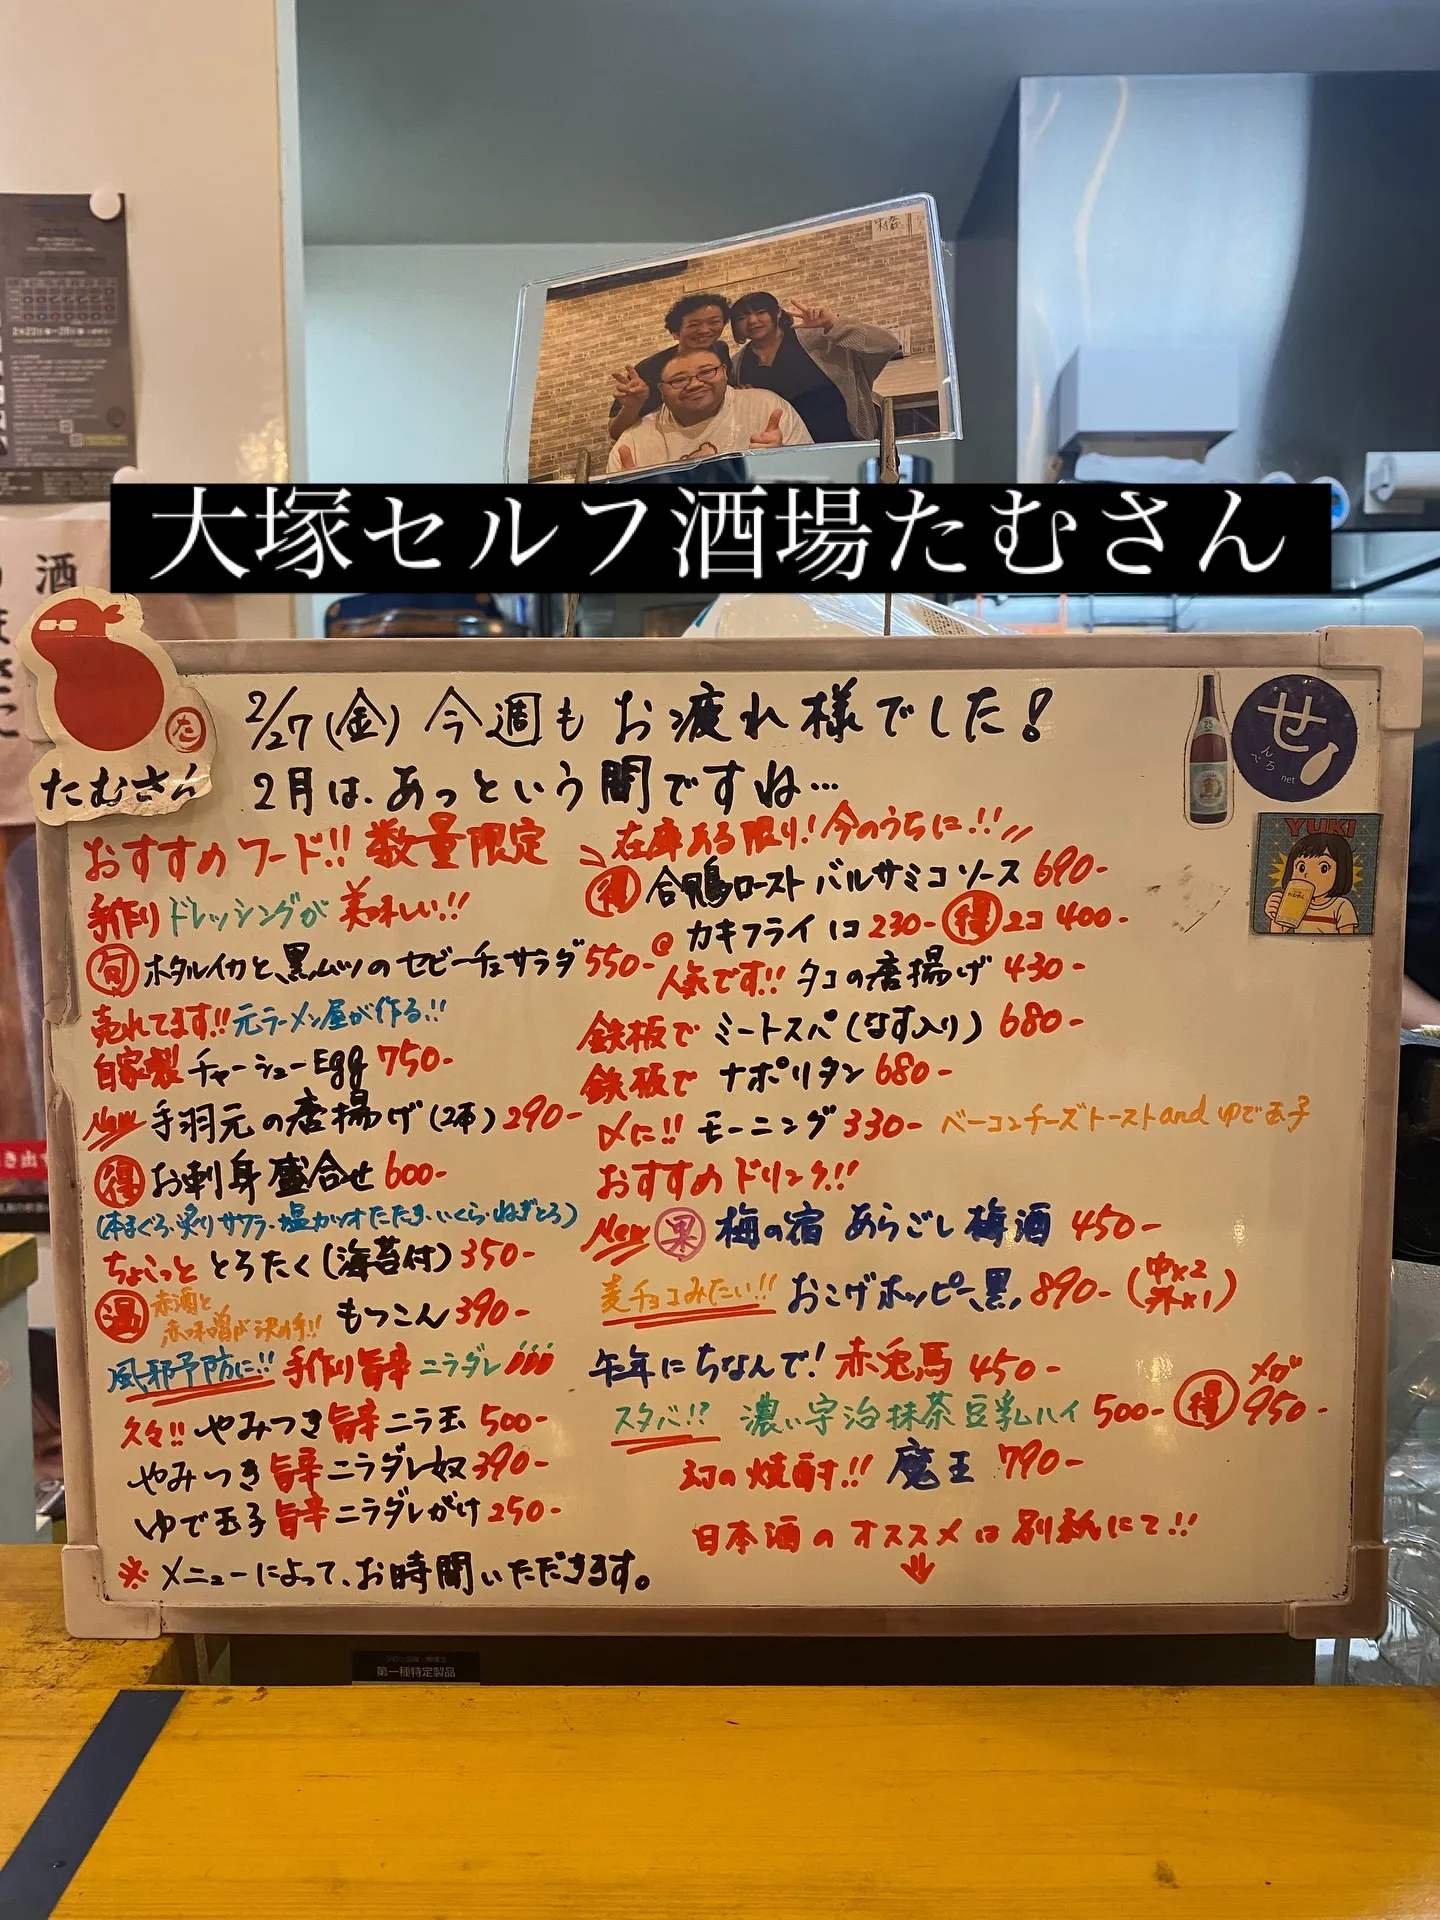 大塚セルフ酒場たむさん
たむさん
2/27(金) 今週もお疲れ様でした!
2月は、あっという間ですね…
おすすめフード!! 数量限定
手作りドレッシングが美味しい!!
旬 ホタルイカと黒ムツのセビーチェサラダ 550-
売れてます!! 元ラーメン屋が作る!!
自家製チャーシューEgg 750-
New 手羽元の唐揚げ(2本) 290-
得 お刺身盛合せ 600-
(本まぐろ・炙りサワラ・塩カツオたたき・いくら・ねぎとろ)
ちょこっと とろたく(海苔付) 350-
温 赤酒と
赤味噌が決め手!!
もつこん 390-
風邪予防に!! 手作り旨辛ニラダレ
久々!! やみつき旨辛ニラ玉 500-
やみつき旨辛ニラダレ奴 390-
ゆで玉子旨辛ニラダレがけ 250-
※メニューによって、お時間いただきます。
在庫ある限り!今のうちに!!
得 合鴨ロースト バルサミコソース 690-
@ カキフライ 1コ 230- 得 2コ 400-
人気です!! タコの唐揚げ 430-
鉄板で ミートスパ(なす入り) 680-
鉄板で ナポリタン 680-
〆に!! モーニング 330- ベーコンチーズトーストandゆで玉子
おすすめドリンク!!
New 果 梅の宿 あらごし梅酒 450-
麦チョコみたい!! おこげホッピー黒 890- (中×2
外×1)
午年にちなんで! 赤兎馬 450-
スタバ!? 濃い宇治抹茶豆乳ハイ 500- 得 メガ 950-
幻の焼酎!! 魔王 790-
日本酒のオススメは別紙にて!!
せ
んべろ
net
YUKI
酒
第一種特定製品